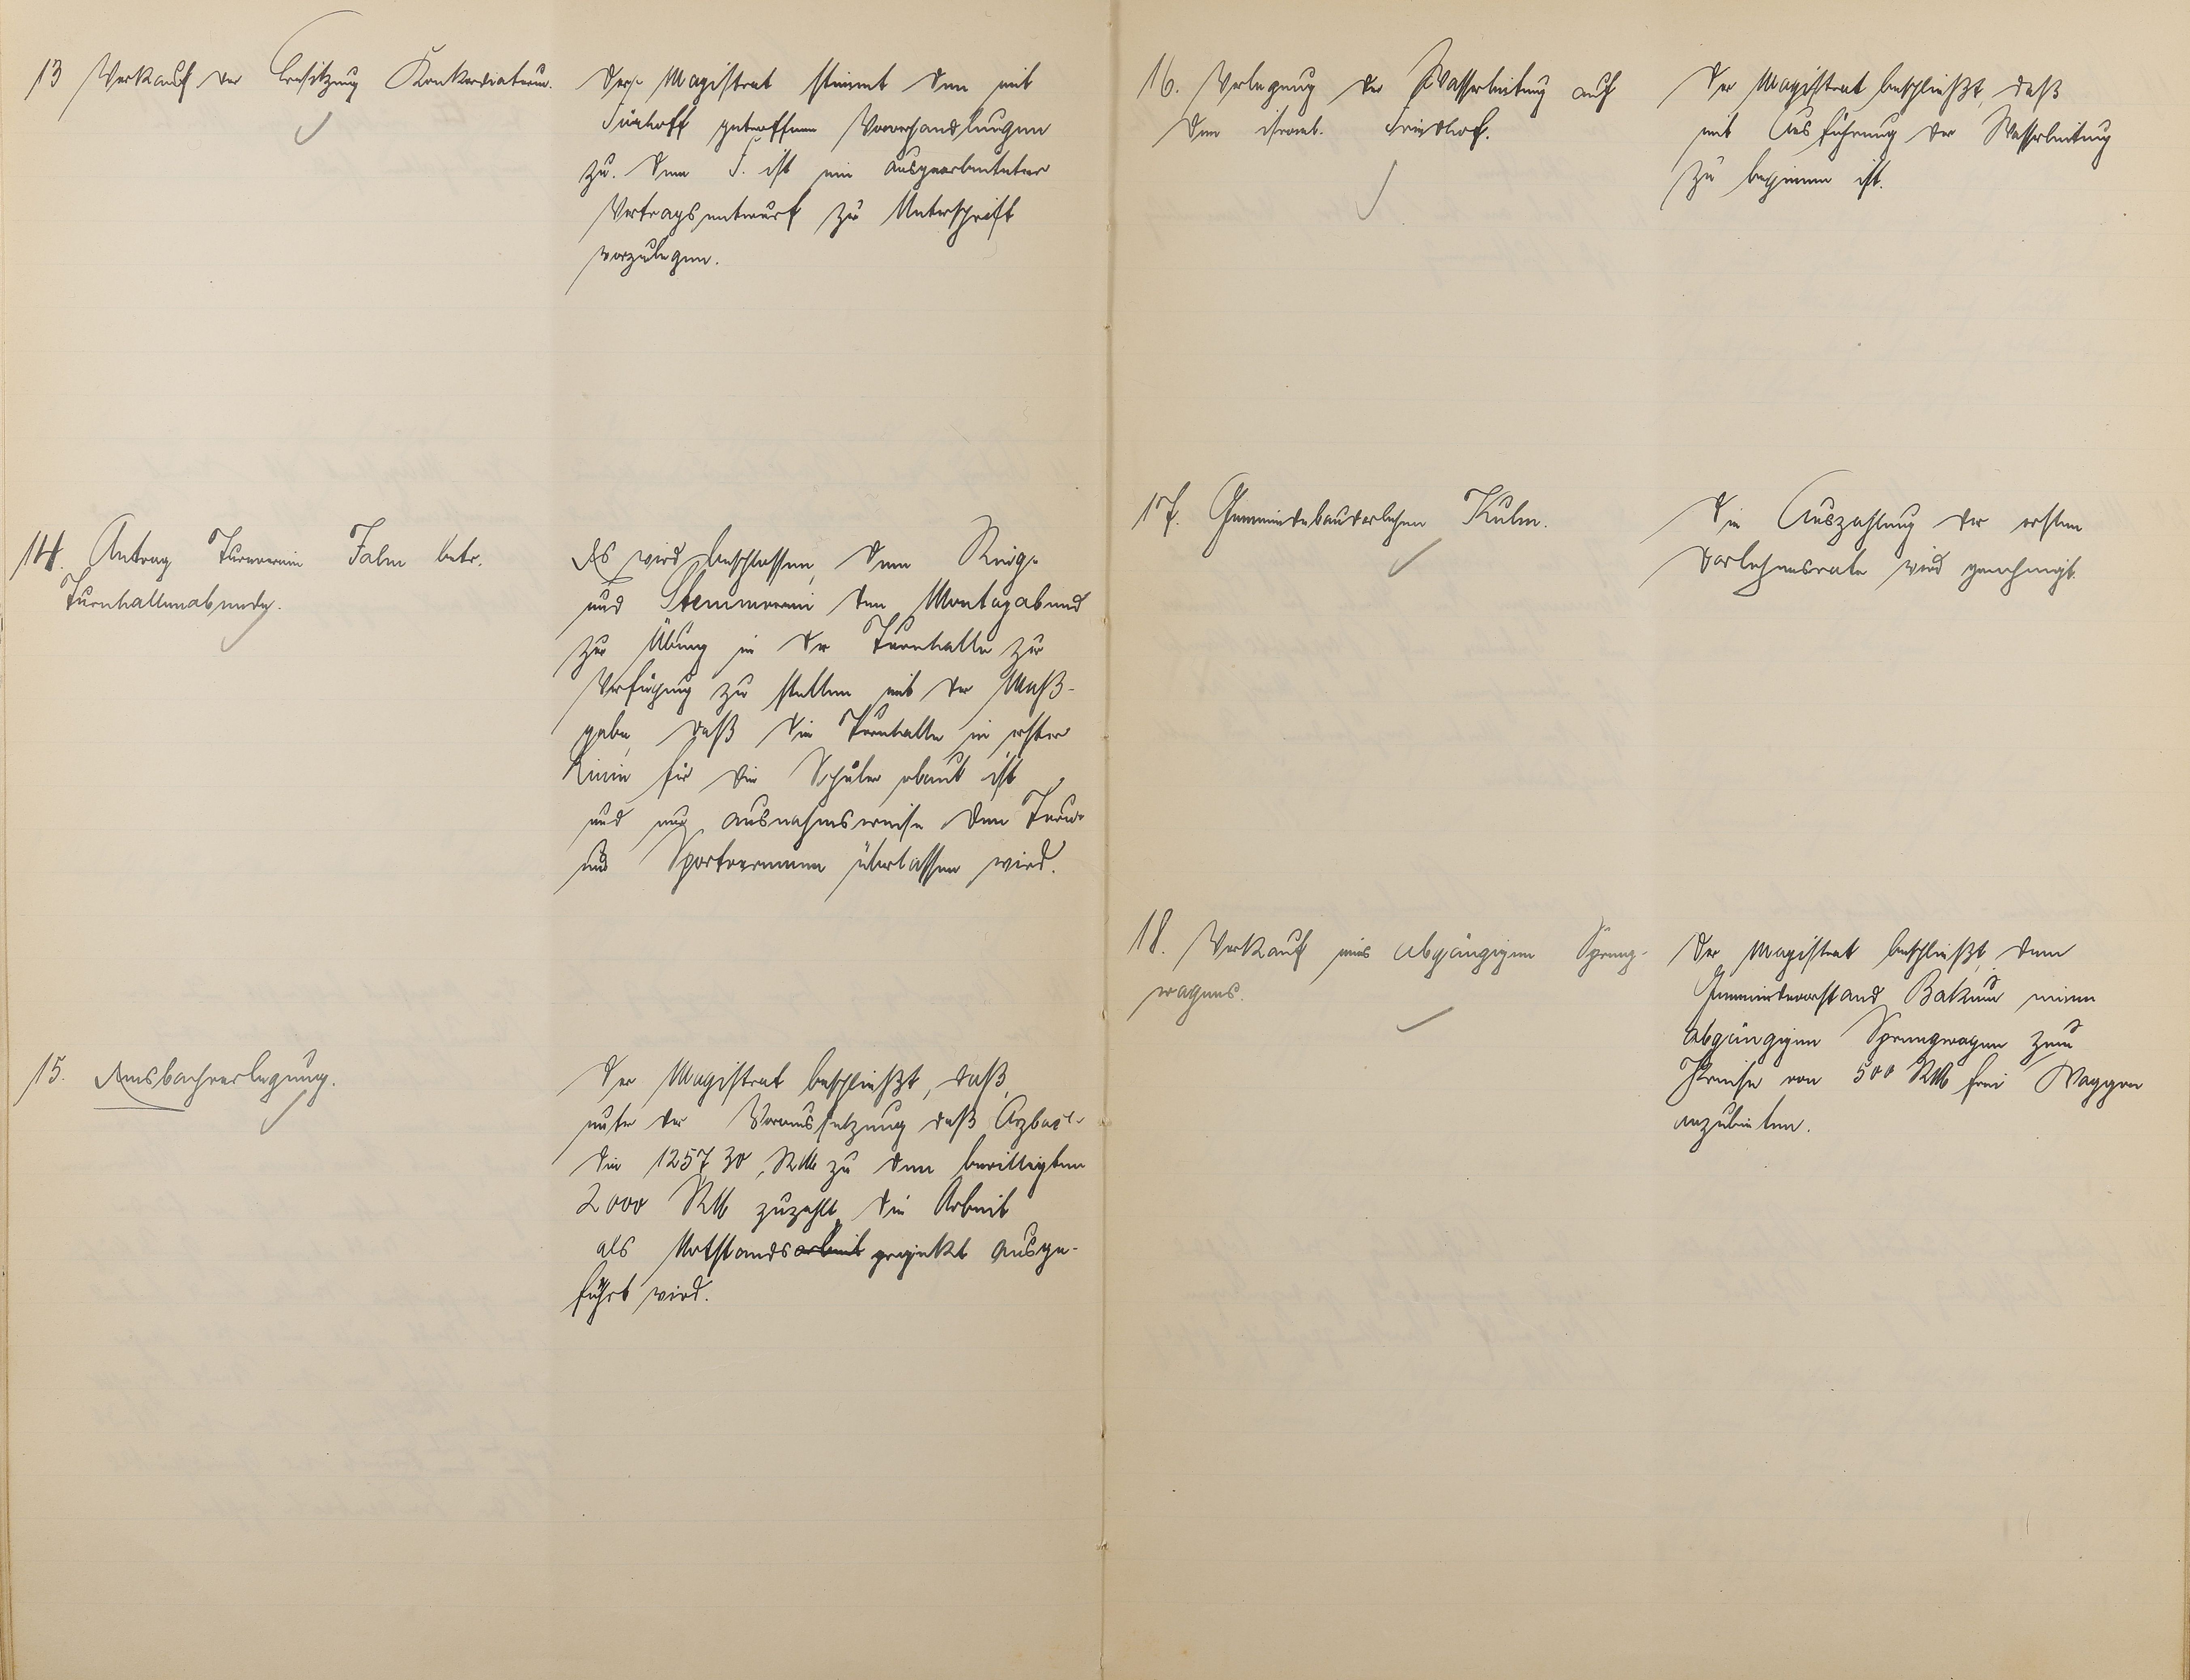 13 Verkauf der Besitzung Konkordiaturm.
Der Magistrat stimmt den mit
getroffenen Vorverhandlungen
zu. Dem S. ist ein ausgearbeiteter
Vertragsentwurf zur Unterschrift
vorzulegen.
14. Antrag Turnverein Jahn betr.
Turnhallenabende.
Es wird beschlossen, dem Ring-
und Stemmverein den Montagabend
zur Übung in der Turnhalle zur
Verfügung zu stellen mit der Maß-
gabe, daß die Turnhalle in erster
Linie für die Schüler erbaut ist
und nur ausnahmsweise den Turn-
und Sportvereinen überlassen wird.
15. Emsbachverlegung.
Der Magistrat beschließt, daß
unter der Voraussetzung daß Arzbach
die 1257 30 RM zu den bewilligten
2000 RM zuzahlt, die Arbeit
als Notstandsarbeit projekt ausge-
führt wird.
16. Verlegung der Wasserleitung auf
dem israel. Friedhof.
Der Magistrat beschließt, daß
mit Ausführung der Wasserleitung
zu beginnen ist.
17. Gemeindebaudarlehen Kulm.
Die Auszahlung der ersten
Darlehensrate wird genehmigt.
18. Verkauf eines abgängigen Spreng-
wagens.
Der Magistrat beschließt, dem
Gemeindevorstand Bakum einen
abgängigen Sprengwagen zum
Preise von 500 RM frei Waggon
anzubieten.